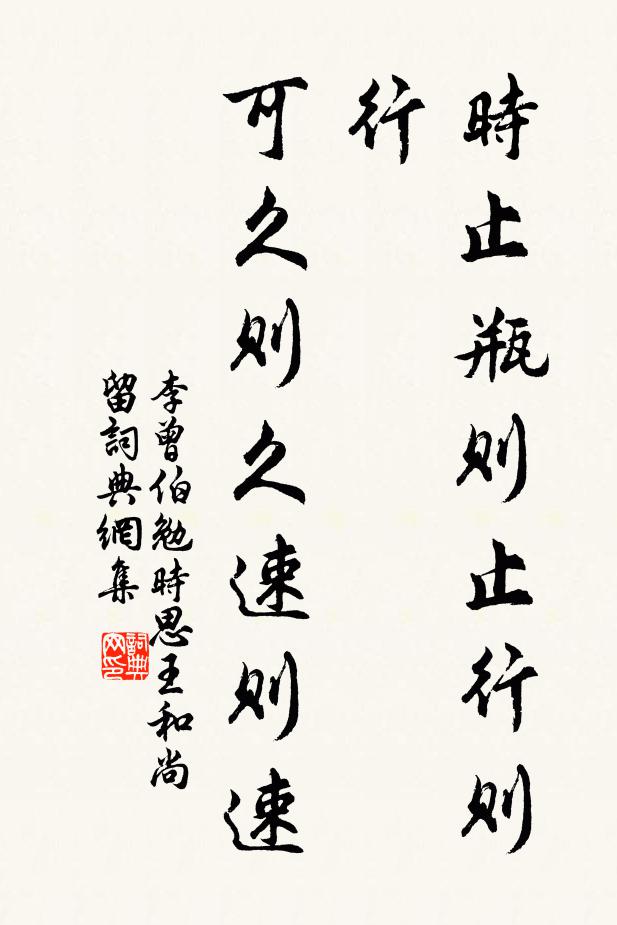 時止瓶则止行则
行
可久则久速则速
李曾伯勉時思王和尚
留詞典網集
詞典
网印